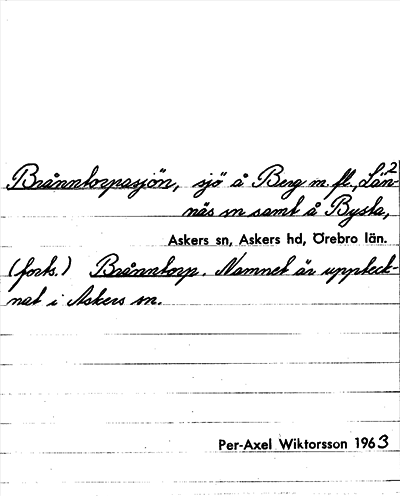 2
Brånntorpasjön, sjö å Berg m fl., Län-
näs sn samt å Bysta,
Askers sn, Askers hd, Örebro län.
(forts.) Brånntorp. Namnet är uppteck-
nat i Askers sn.
Per-Axel Wiktorsson 1963